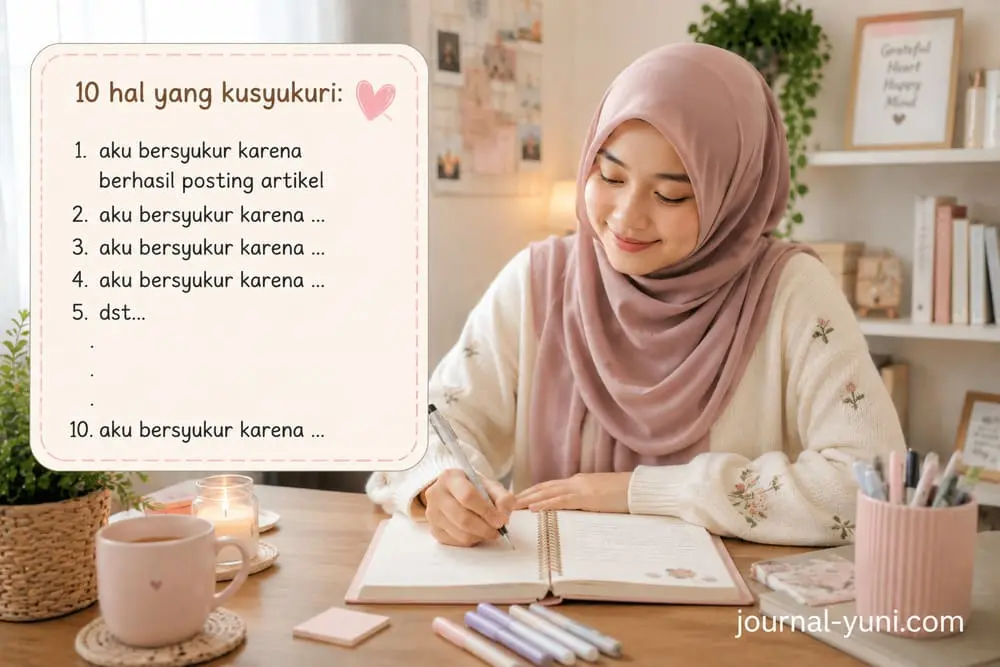 10 hal yang kusyukuri:
1. aku bersyukur karena
berhasil posting artikel
2. aku bersyukur karena ...
3. aku bersyukur karena ...
4. aku bersyukur karena ...
5. dst...
.
.
.
10. aku bersyukur karena ...
Grateful
Heart
Happy
Mind
journal-yuni.com